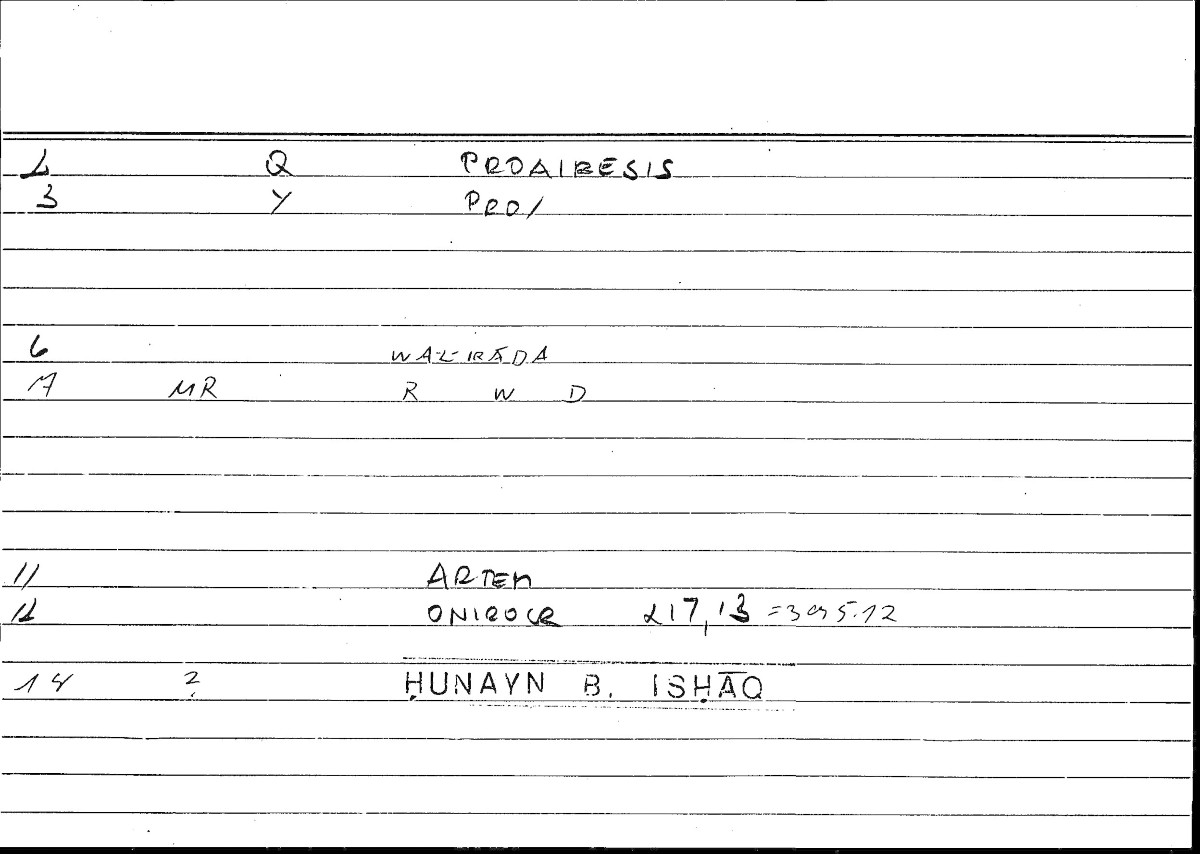 2 Q PROAIRESIS
3 Y PRO/
6 WAL-IRĀDA
7 MR R W D
11 ARTEM
12 ONIROCR 217,13 = 395.12
14 ? ḤUNAYN B. ISḤĀQ